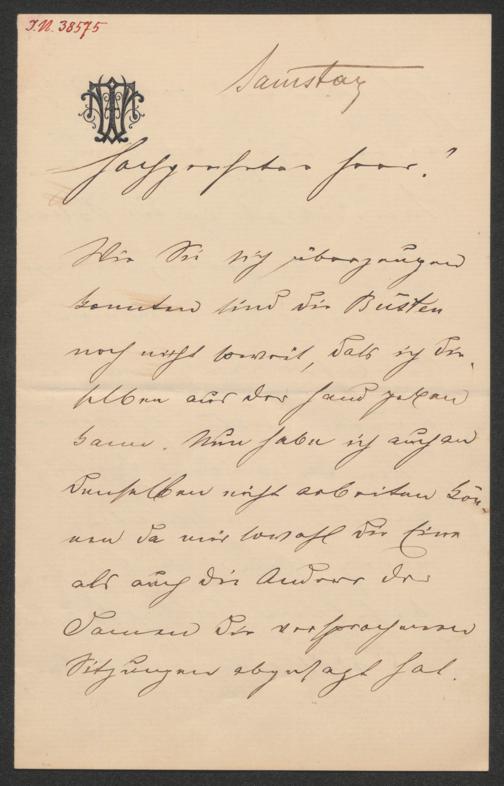 I.N. 38575
Samstag
Hochgeehrter Herr!
Wie Sie sich überzeugen
konnten sind die Büsten
noch nicht soweit, daß ich die-
selben aus der Hand geben
kann. Nun habe ich auch an
denselben nicht arbeiten kön-
nen da mir sowohl die Eine
als auch die Andere der
Damen die versprochenen
Sitzungen abgesagt hat.